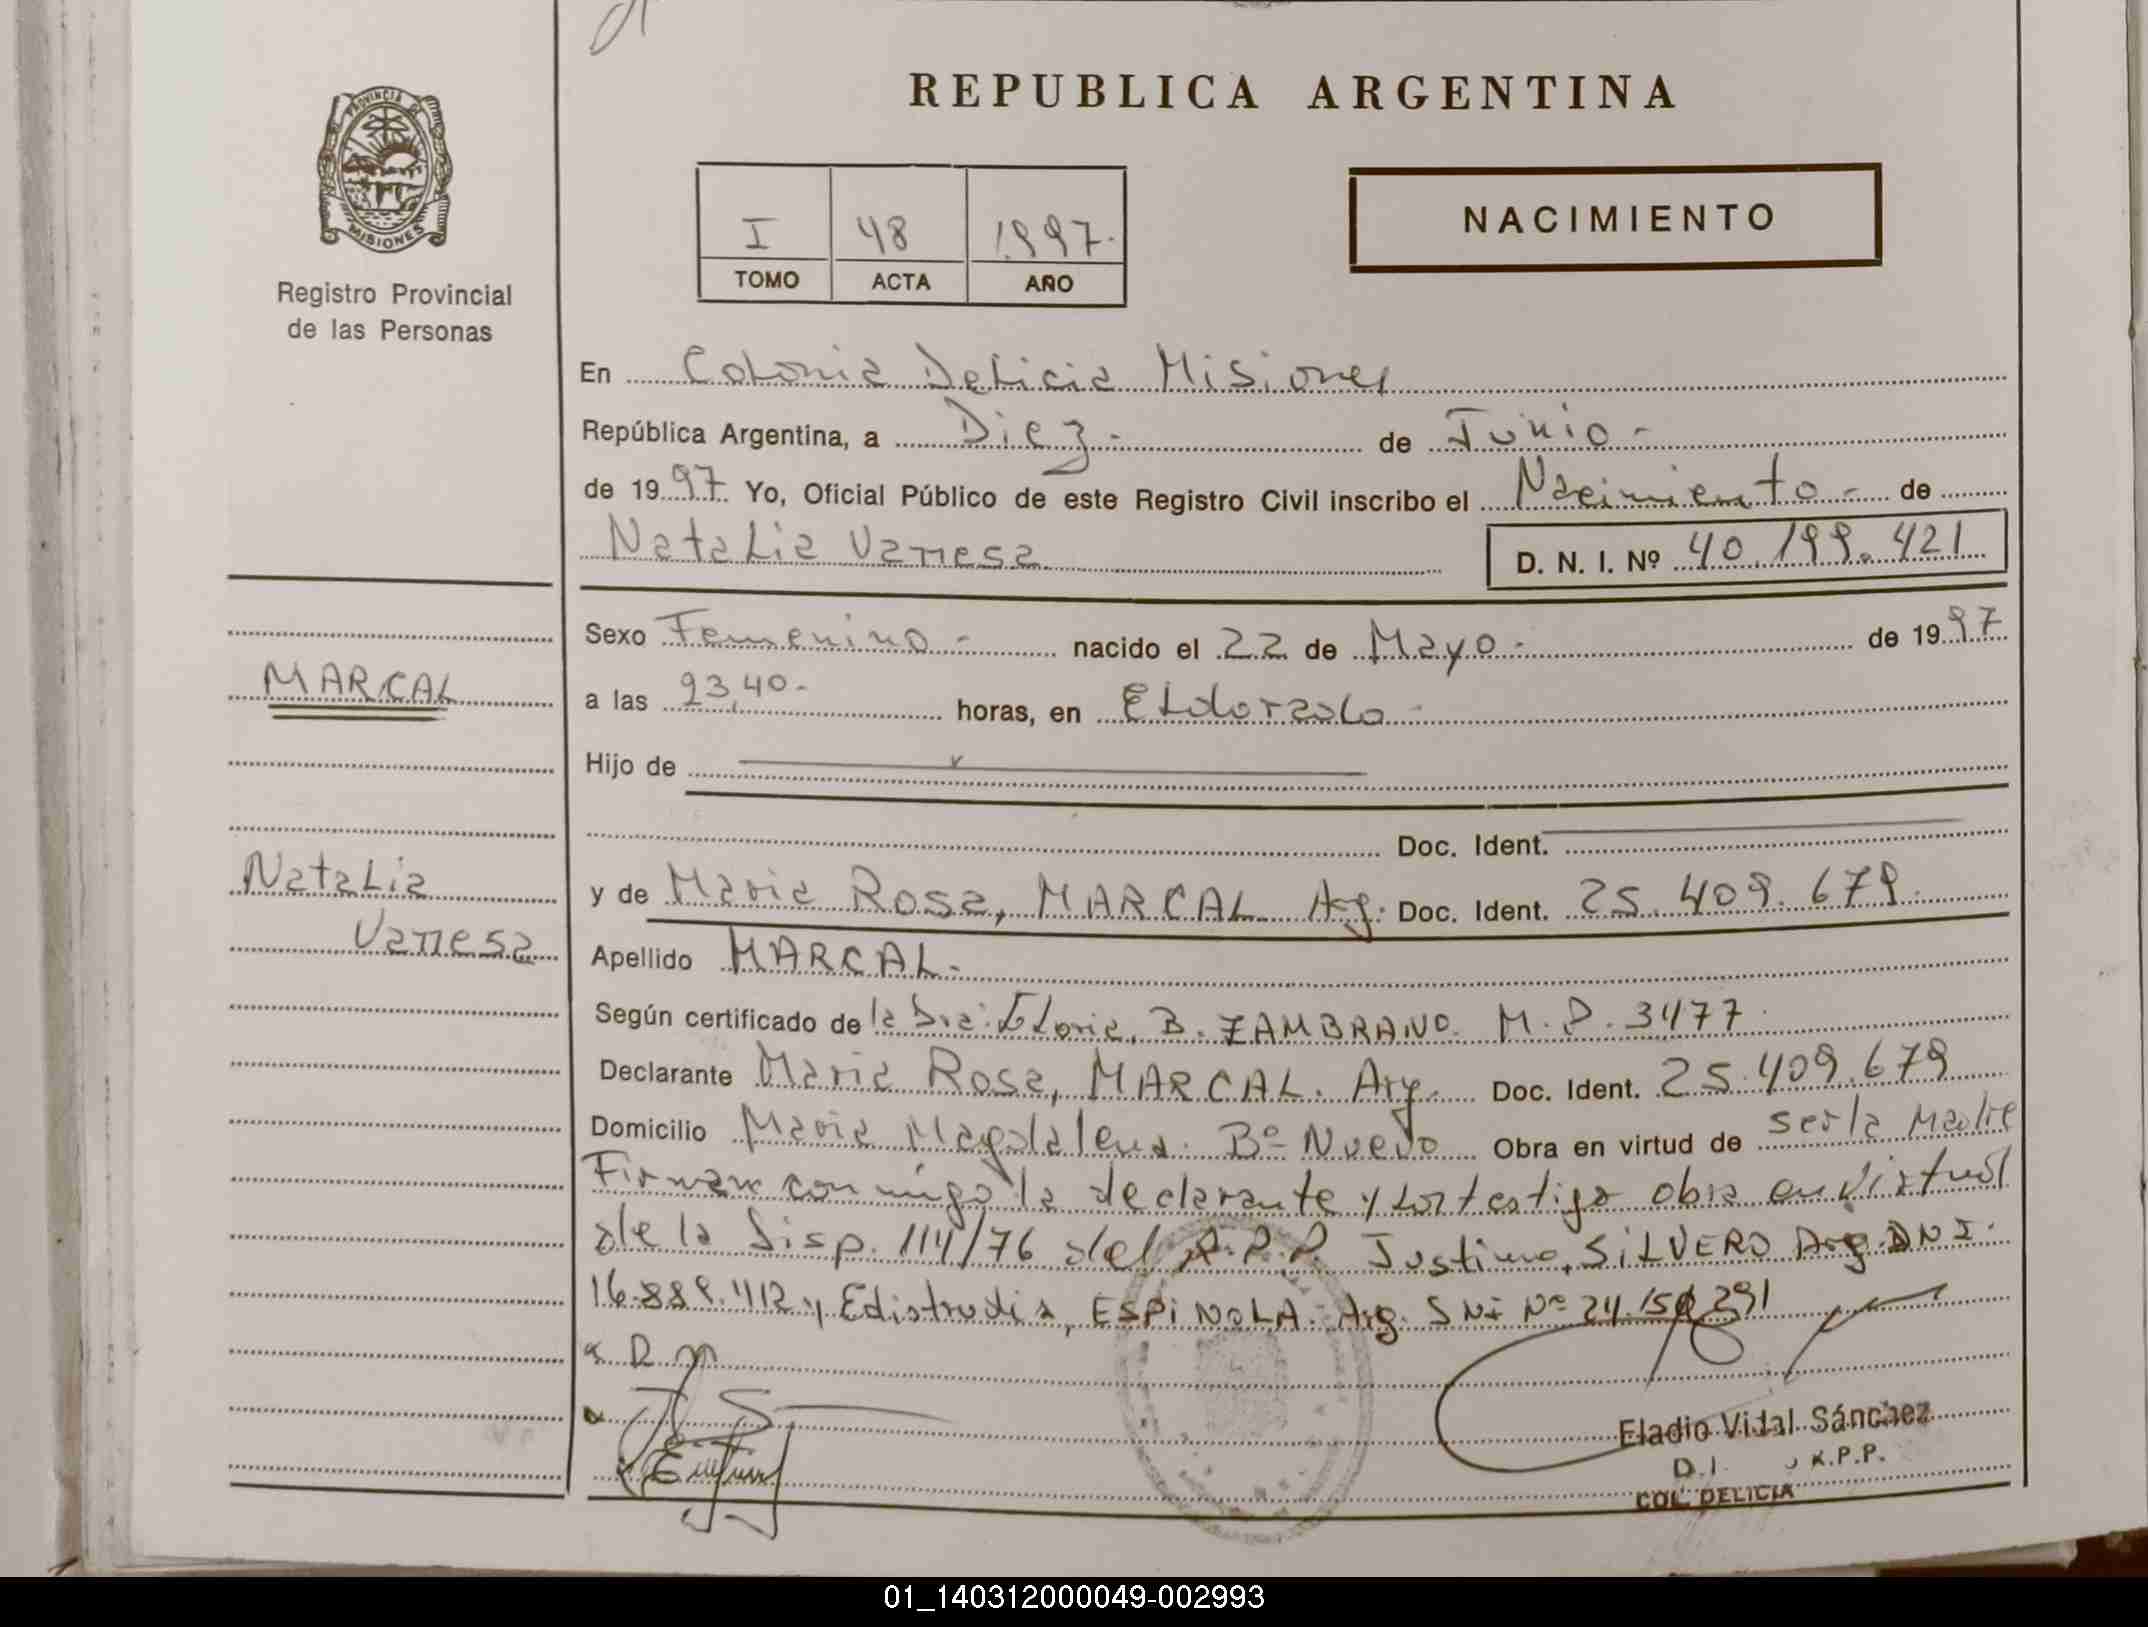 PROVINCIA DE
MISIONES
Registro Provincial
de las Personas
MARCAL
Natalia
Vanesa
REPUBLICA ARGENTINA
I 48 1.997.
TOMO ACTA AÑO
NACIMIENTO
En Colonia Delicia Misiones
República Argentina, a Diez.- de Junio-
de 1997. Yo, Oficial Público de este Registro Civil inscribo el Nacimiento- de
Natalia Vanesa D. N. I. Nº 40.199.421
Sexo Femenino- nacido el 22 de Mayo- de 1997
a las 23,40- horas, en Eldorado-
Hijo de
Doc. Ident.
y de Maria Rosa, MARCAL Arg. Doc. Ident. 25.409.679.
Apellido MARCAL.-
Según certificado de la Dra. Gloria, B. ZAMBRANO. M.P. 3477
Declarante Maria Rosa, MARCAL. Arg. Doc. Ident. 25.409.679
Domicilio Maria Magdalena. Bº Nuevo Obra en virtud de ser la Madre
Firman conmigo la declarante y los testigo obra en virtud
de la Disp. 114/76 del R.P.P. Justino, SILVERO Arg. DNI.
16.889.412 y ESPINOLA. Arg. DNI Nº
Eladio Vidal Sánchez
R.P.P.
COL. DELICIA
01_140312000049-002993